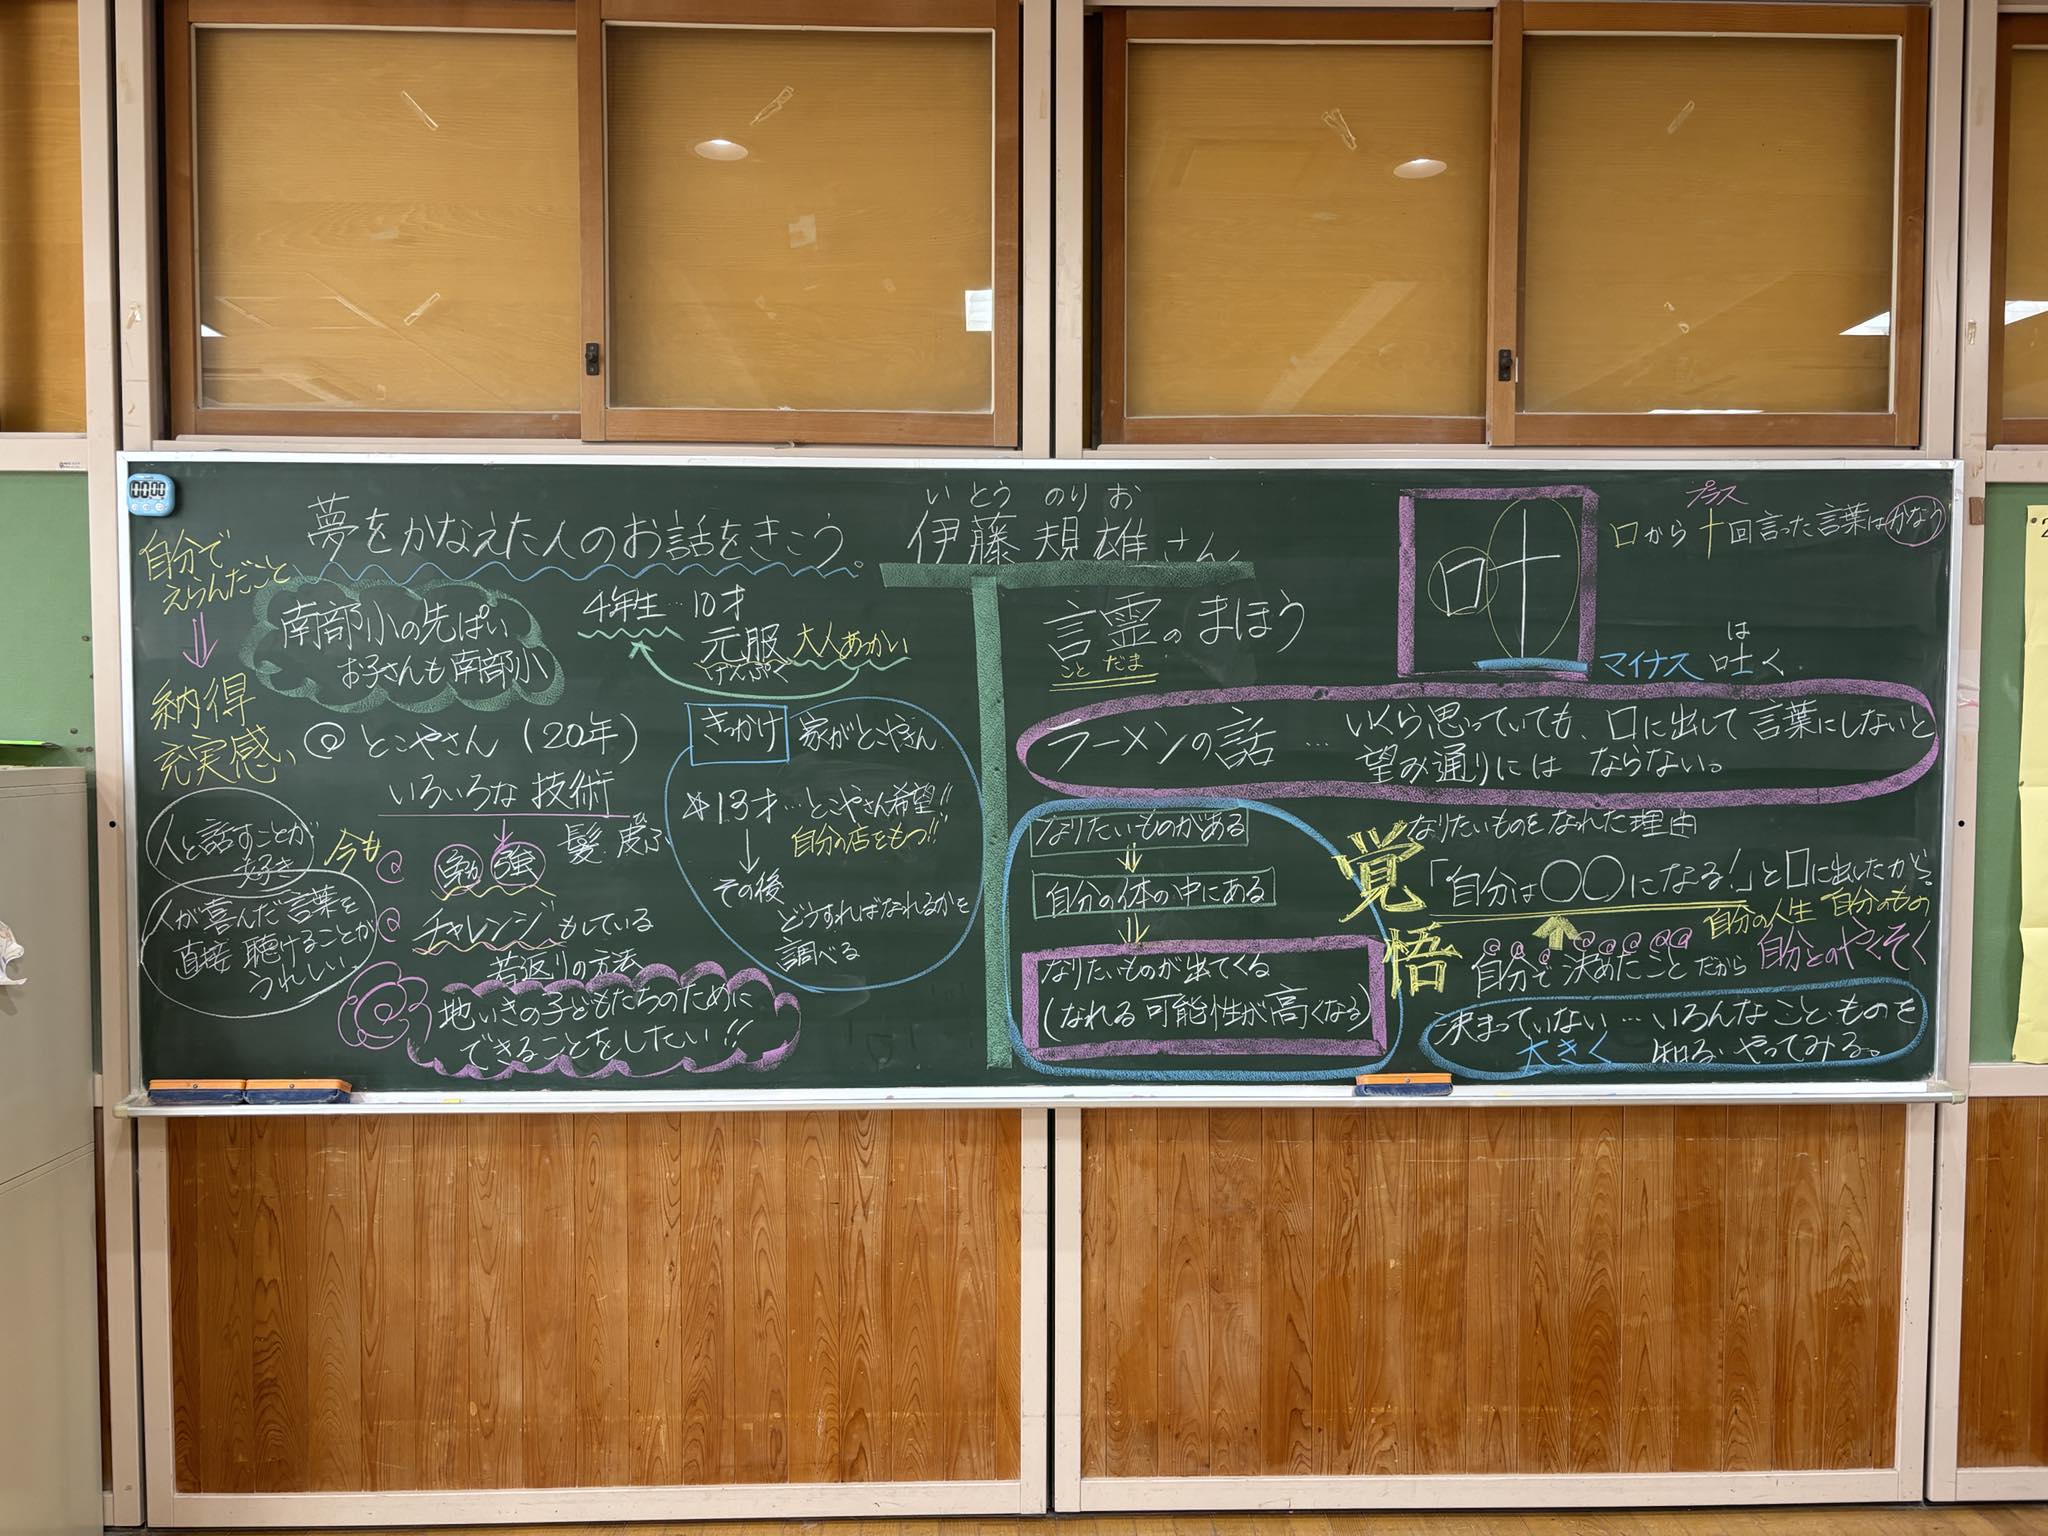 00:00
夢をかなえた人のお話をきこう。
いとう のりお
伊藤 規雄さん
自分で
えらんだこと
納得
充実感
南部小の先ぱい
お子さんも南部小
4年生…10才
元服 大人あつかい
げんぷく
とこやさん(20年)
いろいろな技術
勉強 髪 皮ふ
今も
チャレンジもしている
若返りの方法
地いきの子どもたちのために
できることをしたい!!
人と話すことが
好き
人が喜んだ言葉を
直接 聴けることが
うれしい
きっかけ 家がとこやさん
☆13才…とこやさん希望!!
自分の店をもつ!!
その後
どうすればなれるかを
調べる
言霊のまほう
ことだま
口十
プラス
口から十回言った言葉はかなう
は
マイナス 吐く
ラーメンの話 … いくら思っていても、口に出して言葉にしないと
望み通りには ならない。
なりたいものがある
自分の体の中にある
なりたいものが出てくる
(なれる可能性が高くなる)
覚悟
なりたいものになれた理由
「自分は○○になる!」と口に出したから。
自分の人生 自分のもの
自分で決めたことだから 自分とのやくそく
決まっていない…いろんなこと・ものを
大きく 知る・やってみる。